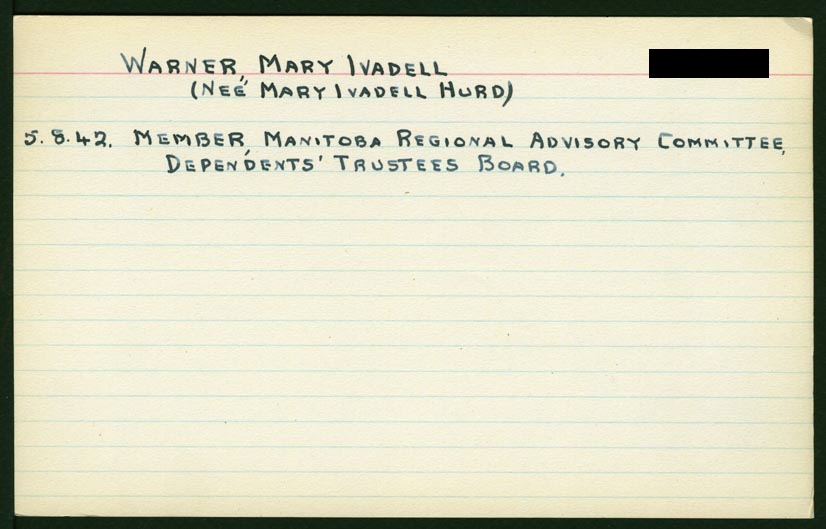 WARNER, MARY IVADELL
(NEÉ MARY IVADELL HURD)
5.8.42. MEMBER, MANITOBA REGIONAL ADVISORY COMMITTEE,
DEPENDENTS' TRUSTEES BOARD.